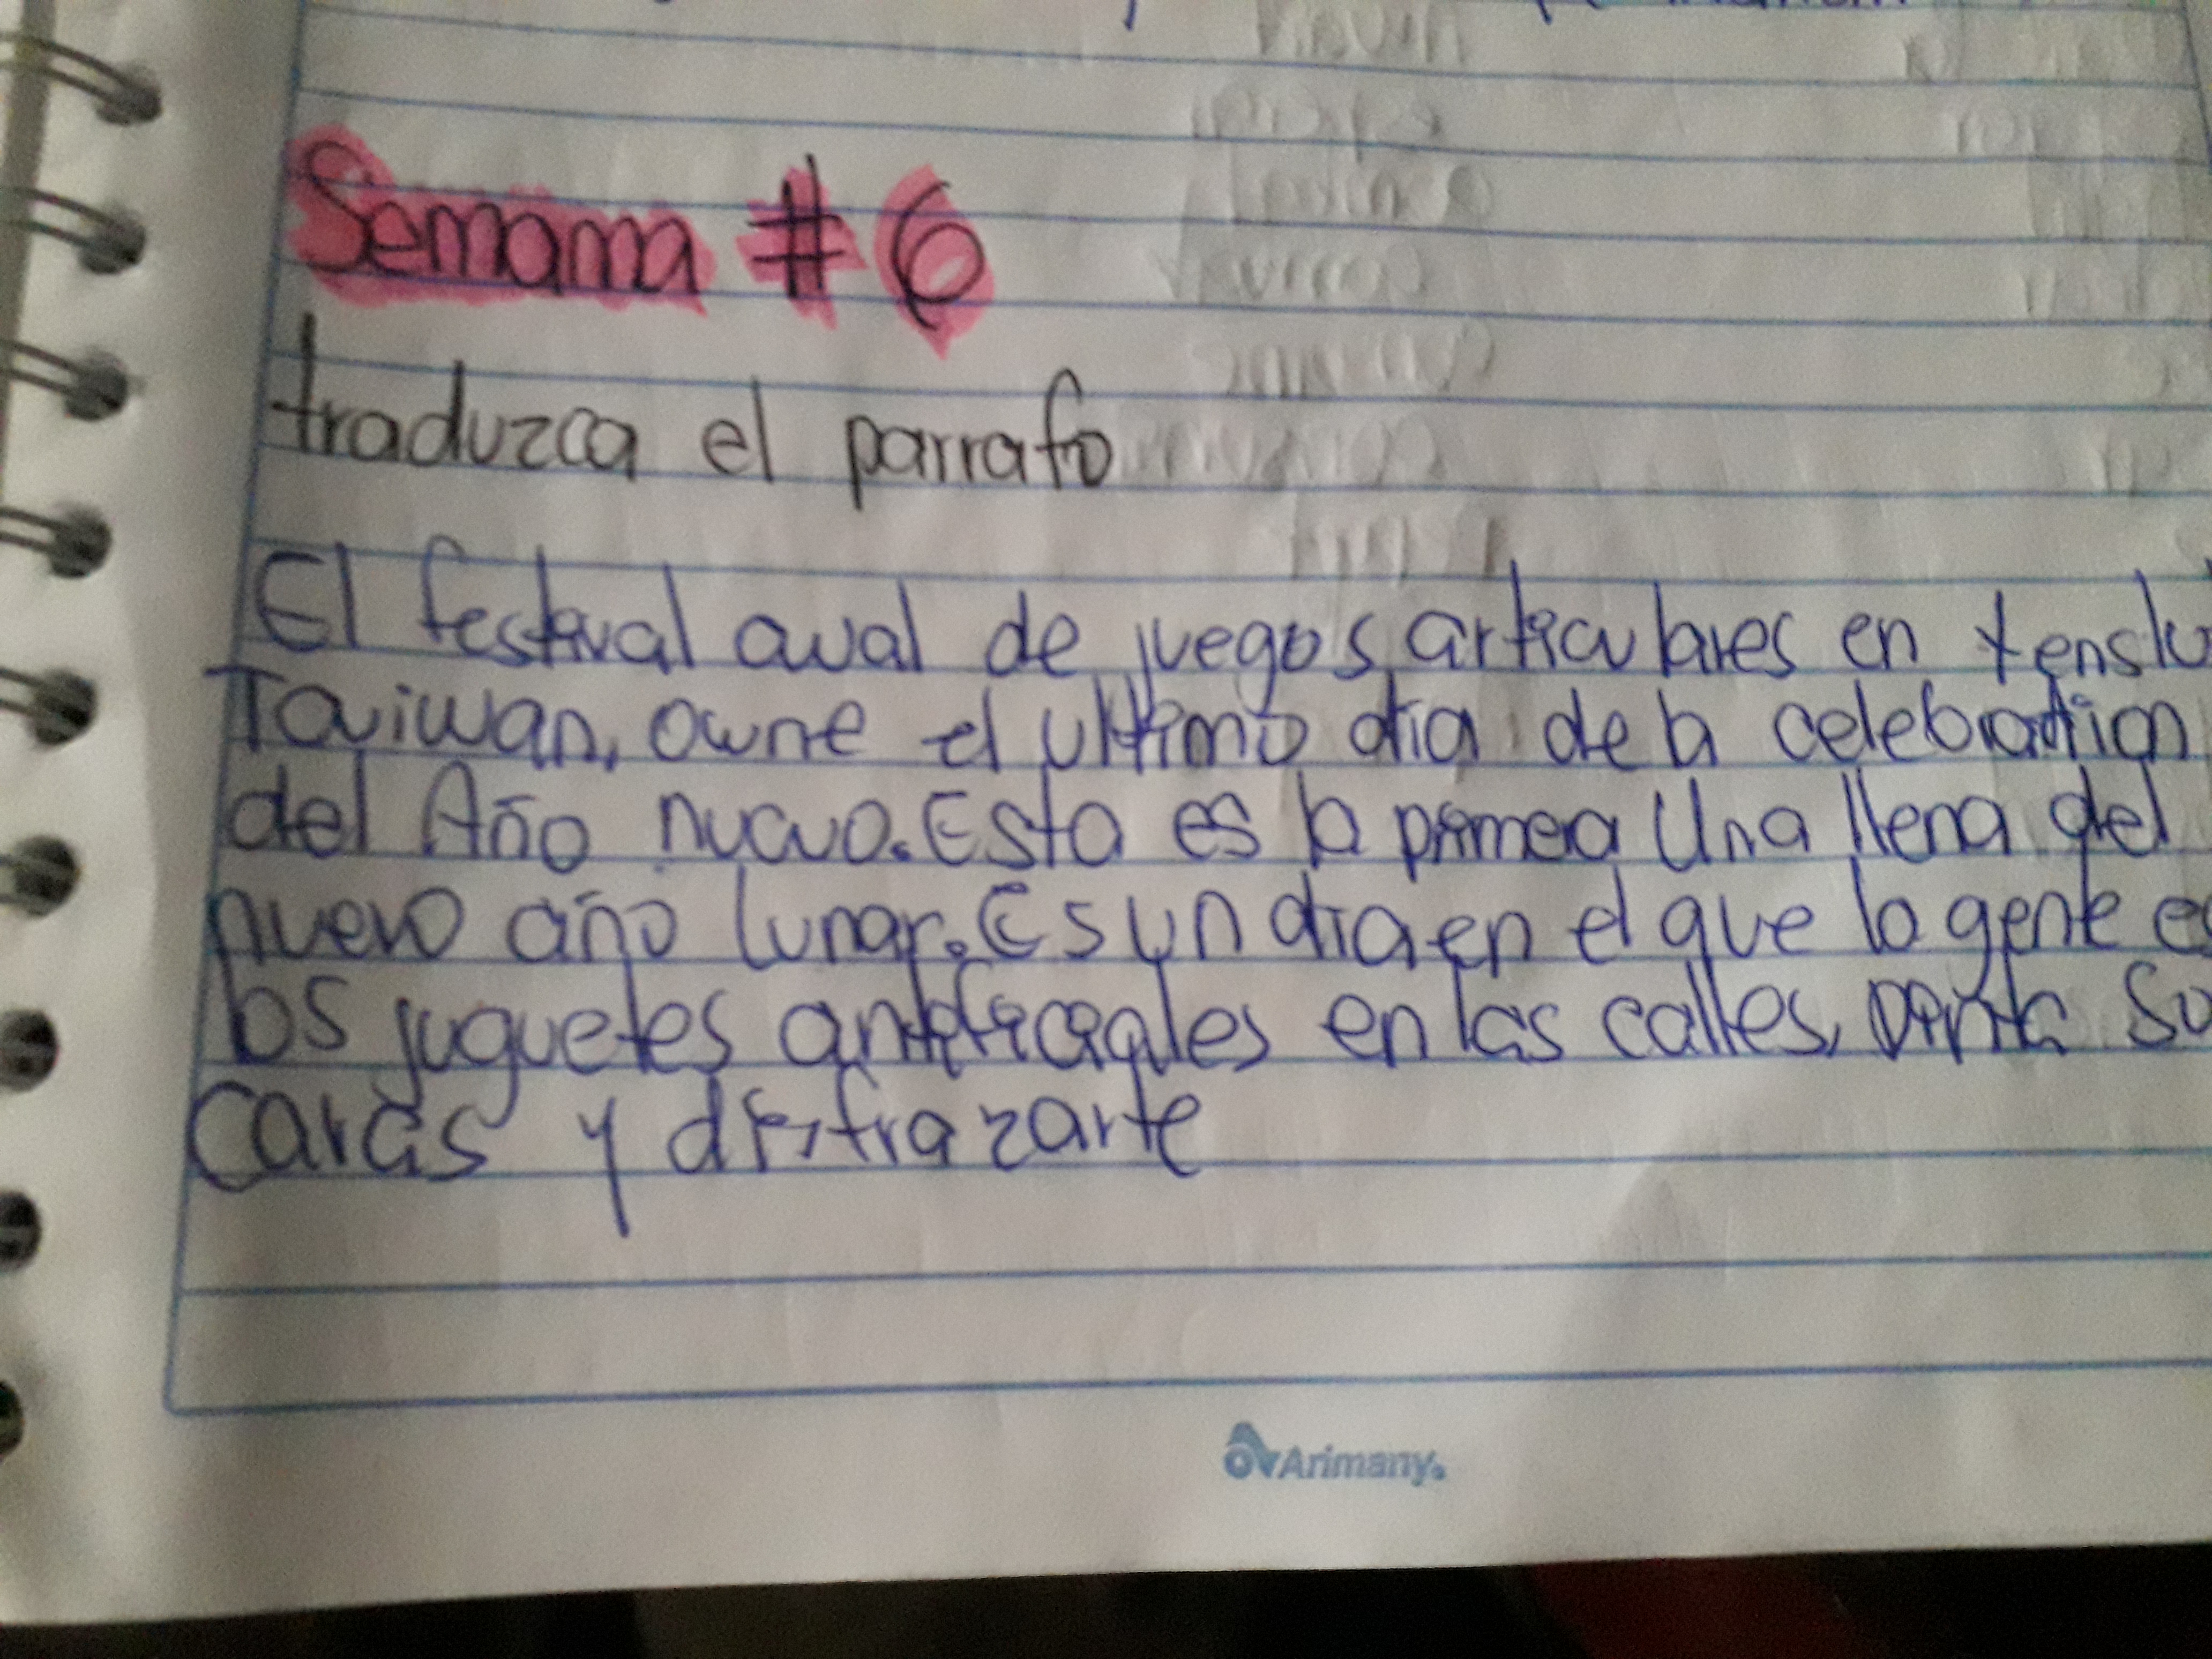 Semana #6
traduzca el parrafo
El festival aual de juegos articulares en
Taiwan, owne el ultimo dia de la celebration
del Año nuevo. Esta es la primea Una llena del
nuevo año lunar. Es un dia en el que la gente
los juguetes en las calles,
caras y disfrazarte
Arimany.